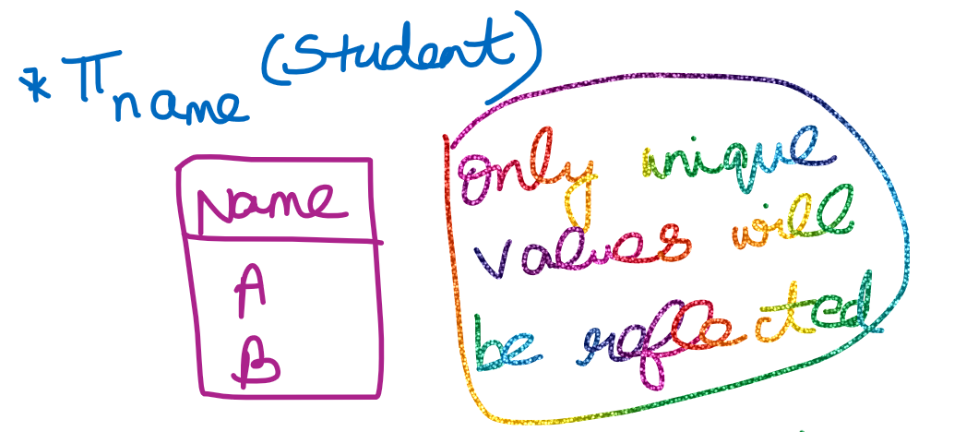 * π name (Student)
Name
A
B
Only unique
values will
be reflected